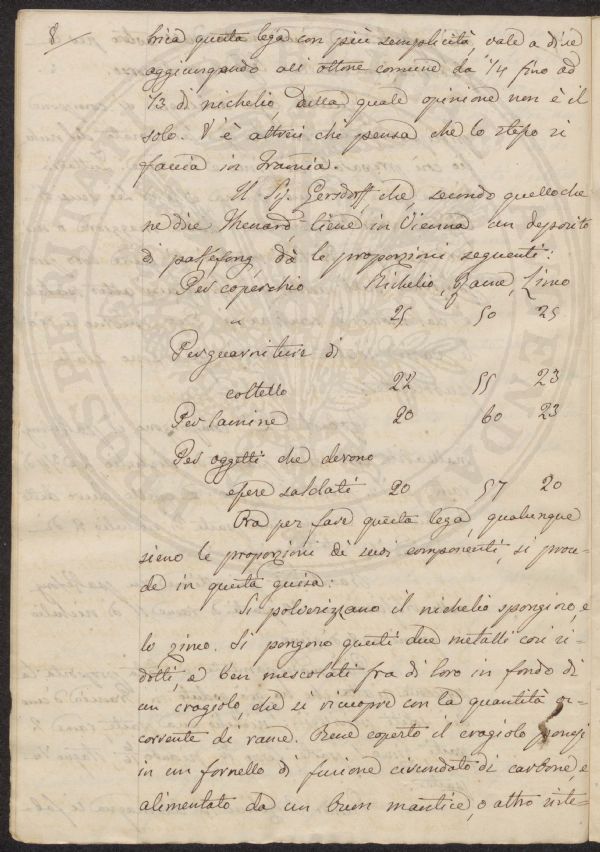 8
brica questa lega con più semplicità, vale a dire
aggiungendo all'ottone comune da 1/4 fino ad
1/3 di nichelio, dalla quale opinione non è il
solo. V'è altresì chi pensa che lo stesso si
faccia in Francia.
Il Sig. Gersdorff, che, secondo quello che
ne dice Menard tiene in Vienna un deposito
di pakfong dà le proporzioni seguenti:
Per coperchio Nichelio, Rame, Zinco
" 25 50 25
Per guarniture di
coltello 22 55 23
Per lamine 20 60 23
Per oggetti che devono
essere saldati 20 57 20
Ora per fare questa lega, qualunque
sieno le proporzioni di suoi componenti, si proce-
de in questa guisa:
Si polverizzano il nichelio spongioso, e
lo zinco. Si pongono questi due metalli così ri-
dotti, e ben mescolati fra di loro in fondo di
un crogiolo, che si ricuopre con la quantità oc-
corrente di rame. Bene coperto il crogiolo ponesi
in un fornello di fusione circondato di carbone, e
alimentato da un buon mantice, o altro siste-